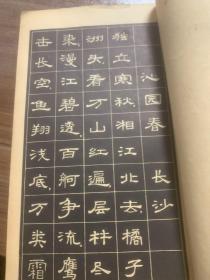 沁园春 长沙
独立寒秋湘江北去，橘子
洲头看万山红遍，层林尽
染，漫江碧透，百舸争流，鹰
击长空鱼翔浅底，万类霜